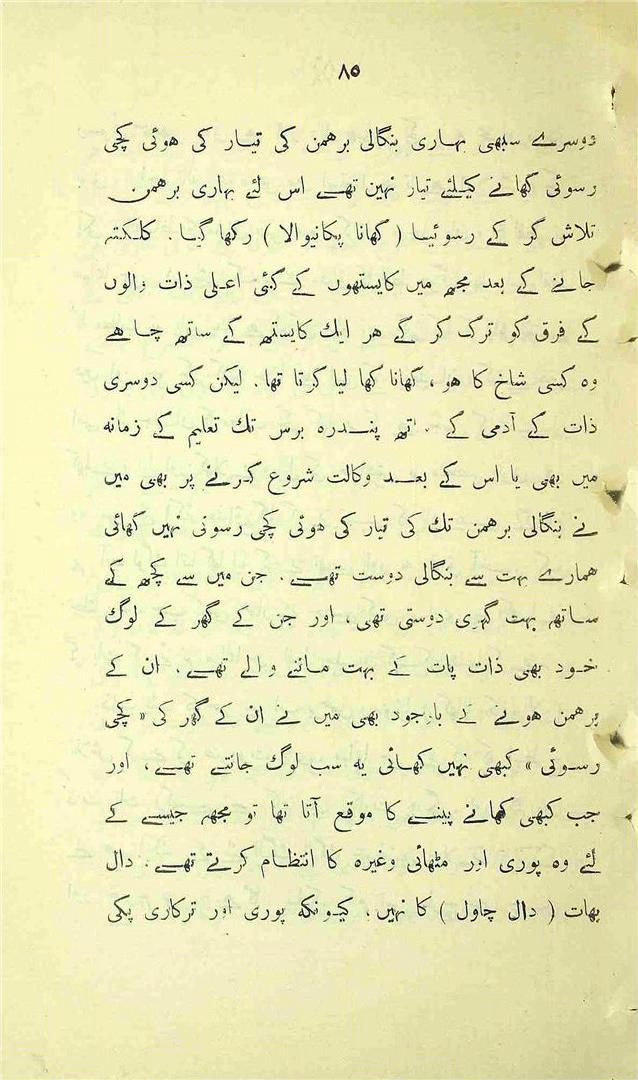 ۸۵
دوسرے سبھی بہاری بنگالی برهمن کی تیار کی هوئی کچی
رسوئی کھانے کیلئے تیار نہین تھے اس لئے بہاری برهمن
تلاش کر کے رسوئیا ( کھانا پکانیوالا ) رکھا گیا . کلکته
جانے کے بعد مجھ میں کایستھوں کے کئی اعلی ذات والوں
کے فرق کو ترک کر کے هر ایك کایستھ کے ساتھ چاهے
وہ کسی شاخ کا هو ، کھانا کھا لیا کرتا تھا . لیکن کسی دوسری
ذات کے آدمی کے ساتھ پندرہ برس تك تعلیم کے زمانه
میں بھی یا اس کے بعد وکالت شروع کرنے پر بھی میں
نے بنگالی برهمن تك کی تیار کی هوئی کچی رسوئی نہیں کھائی
همارے بہت سے بنگالی دوست تھے . جن میں سے کچھ کے
ساتھ بہت گہری دوستی تھی ، اور جن کے گھر کے لوگ
خود بھی ذات پات کے بہت ماننے والے تھے . ان کے
برهمن هونے کے باوجود بھی میں نے ان کے گھر کی « کچی
رسوئی » کبھی نہیں کھائی یه سب لوگ جانتے تھے ، اور
جب کبھی کھانے پینے کا موقع آتا تھا تو مجھ جیسے کے
لئے وہ پوری اور مٹھائی وغیرہ کا انتظام کرتے تھے . دال
بھات ( دال چاول ) کا نہیں . کیونکه پوری اور ترکاری پکی